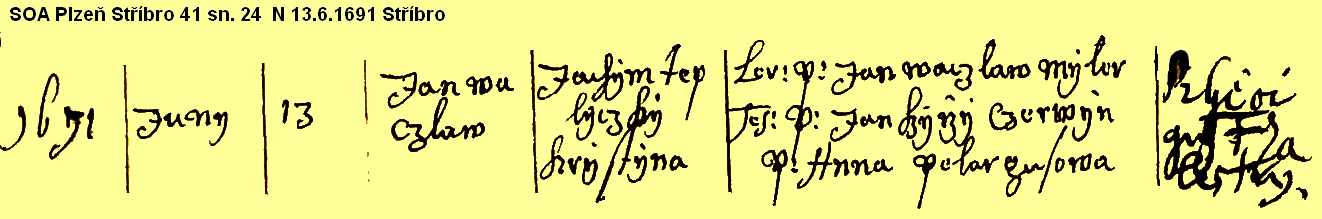 SOA Plzeň Stříbro 41 sn. 24 N 13.6.1691 Stříbro
1691
Juny
13
Jan wa
czlaw
Jachym tep
lyczky
krystyna
Lev: P: Jan waczlaw Myler
Tes: P: Jan Czerwyn
P: Anna pelargusowa